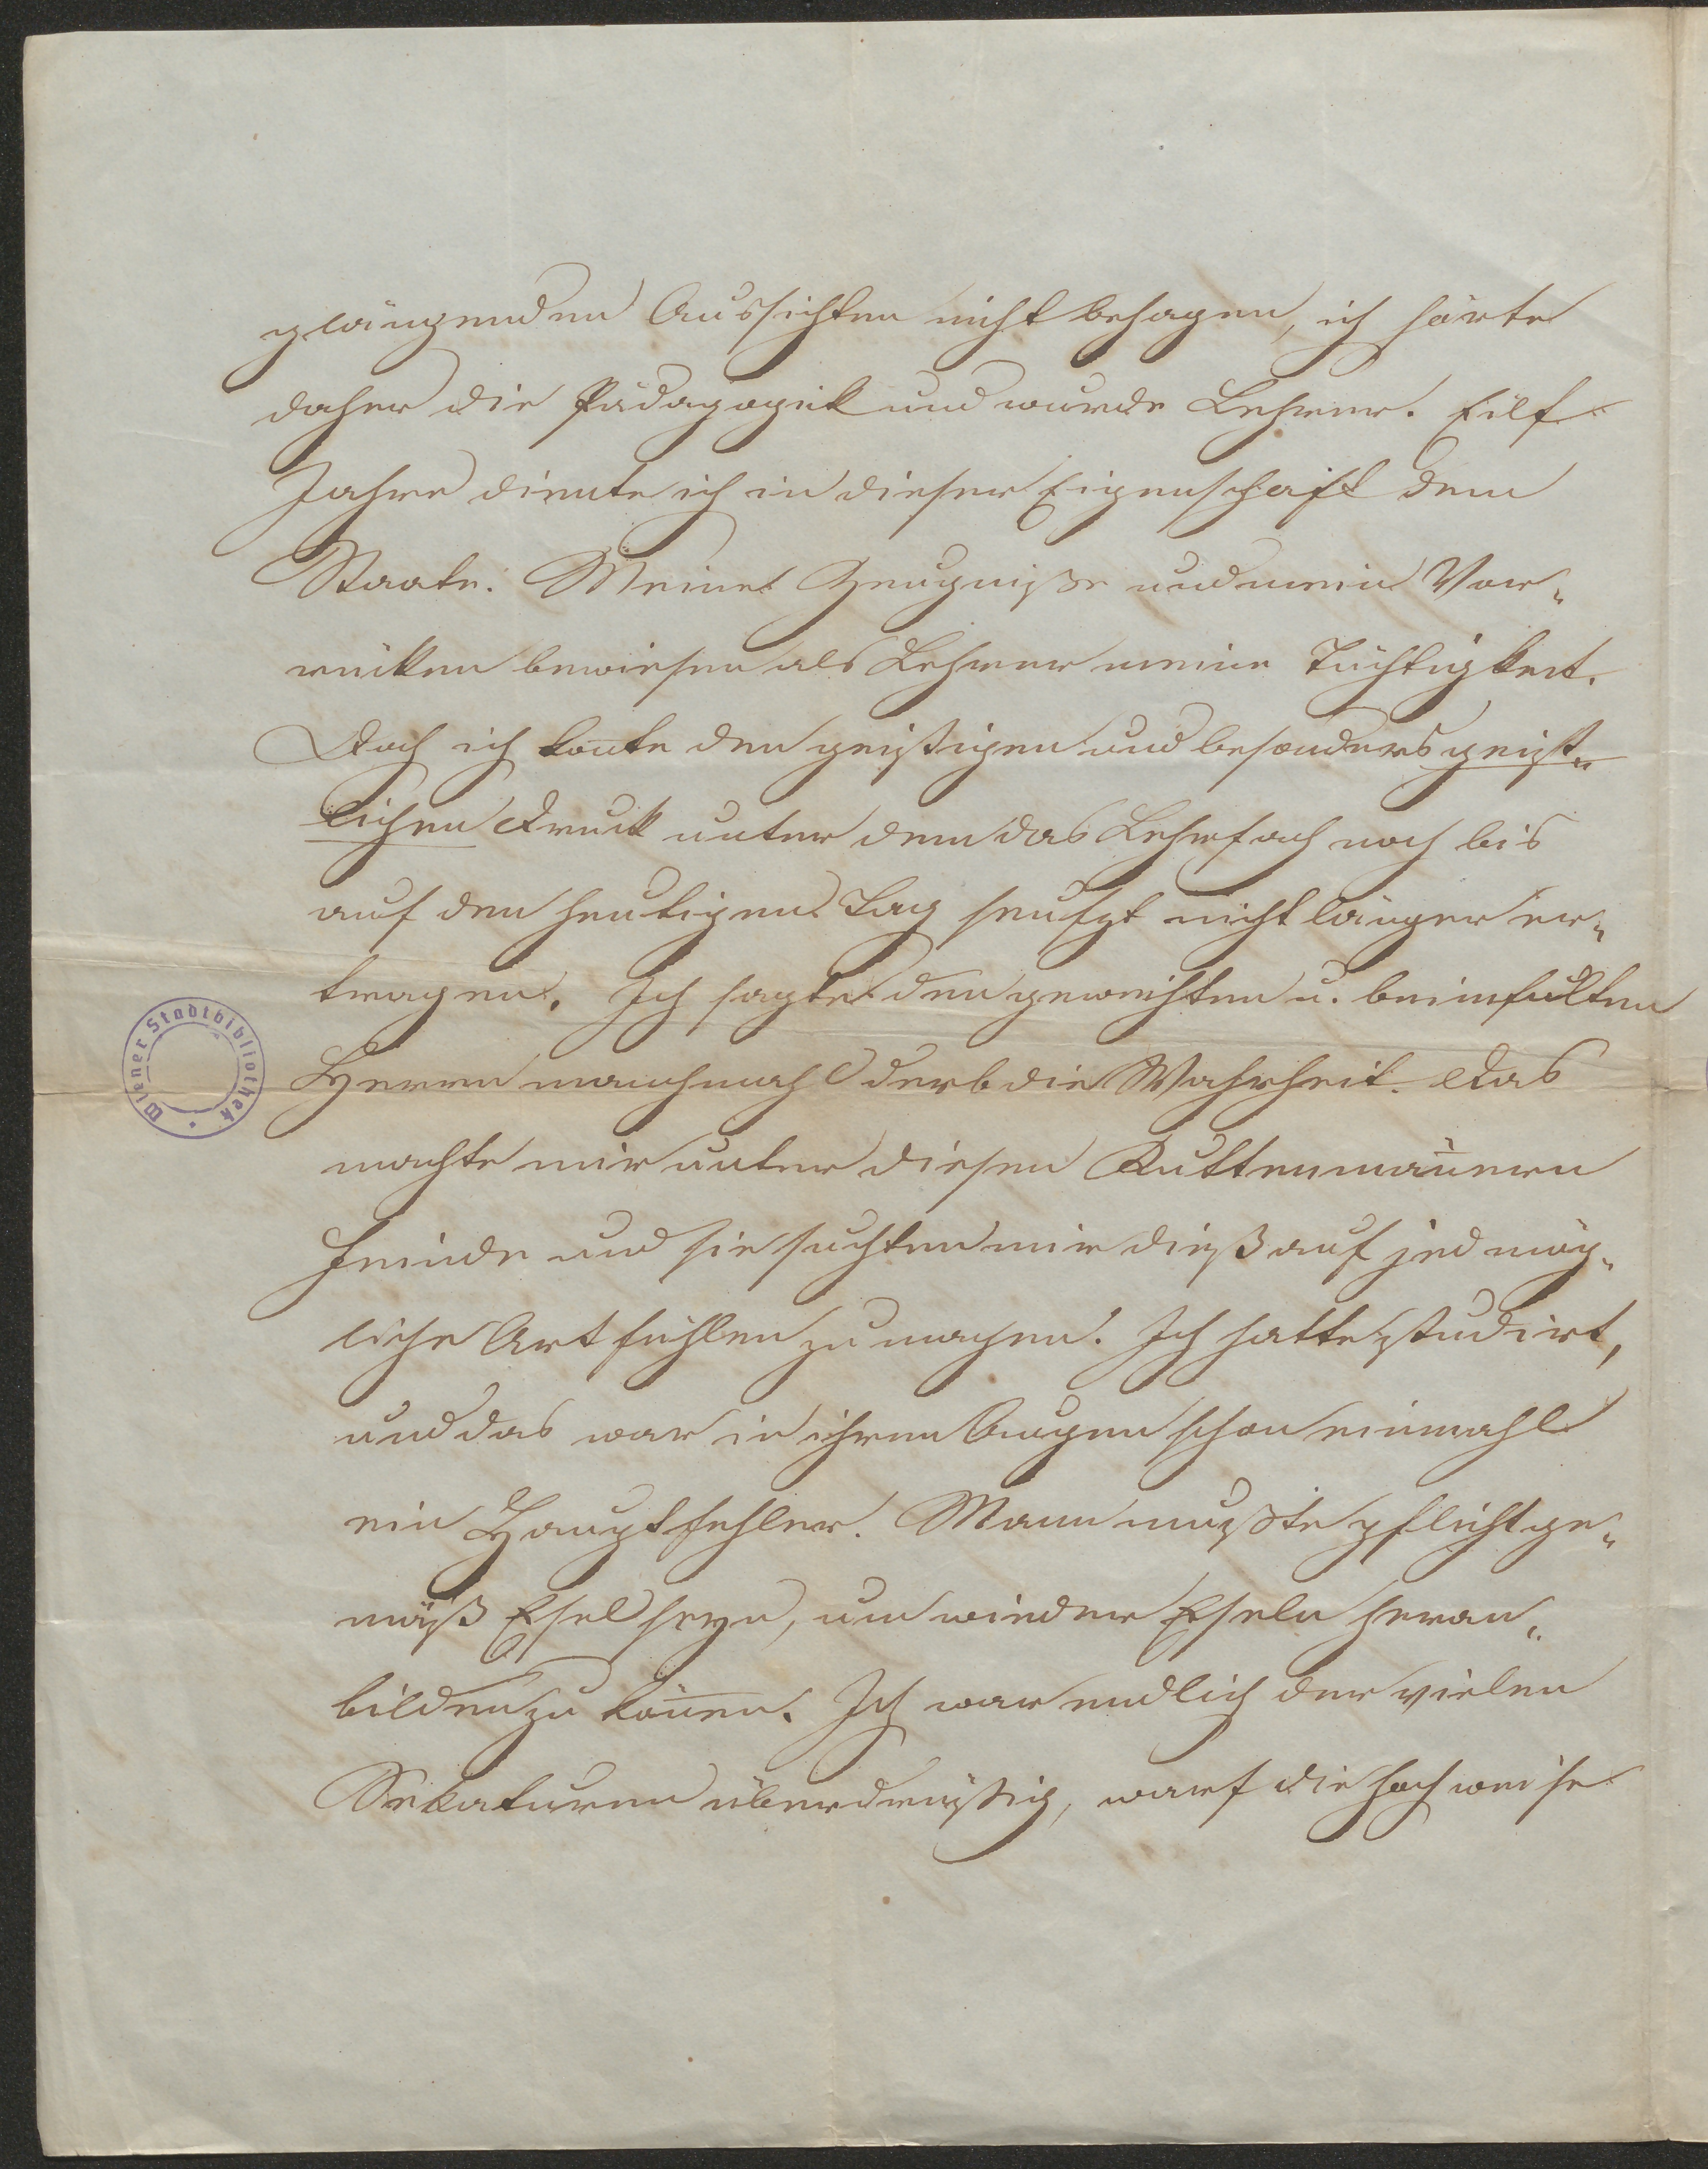 glänzenden Aussichten nicht behagen, ich hörte
daher die Pädagogik und wurde Lehrer. Eilf
Jahre diente ich in dieser Eigenschaft dem
Staate. Meine Zeugniße und mein Vor„
rücken bewiesen als Lehrer meine Tüchtigkeit.
Doch ich konte den geistigen und besonders geist„
lichen Druck unter dem das Lehrfach noch bis
auf den heutigen Tag seufzt nicht länger er„
tragen. Ich sagte den geweihten u.
Herrn manchmahl derb die Wahrheit. Das
machte mir unter diesen Kuttenmänern
Feinde und sie suchten mir dieß auf jed mög„
liche Art fühlen zu machen. Ich hatte studirt,
und das war in ihren Augen schon einmahl
ein Hauptfehler. Mann mußte pflichtge„
mäß Esel seyn, um wieder Eseln heran„
bilden zu könen. Ich war endlich der vielen
Sekaturen überdrüßig, warf die hochweise
Wiener Stadtbibliothek